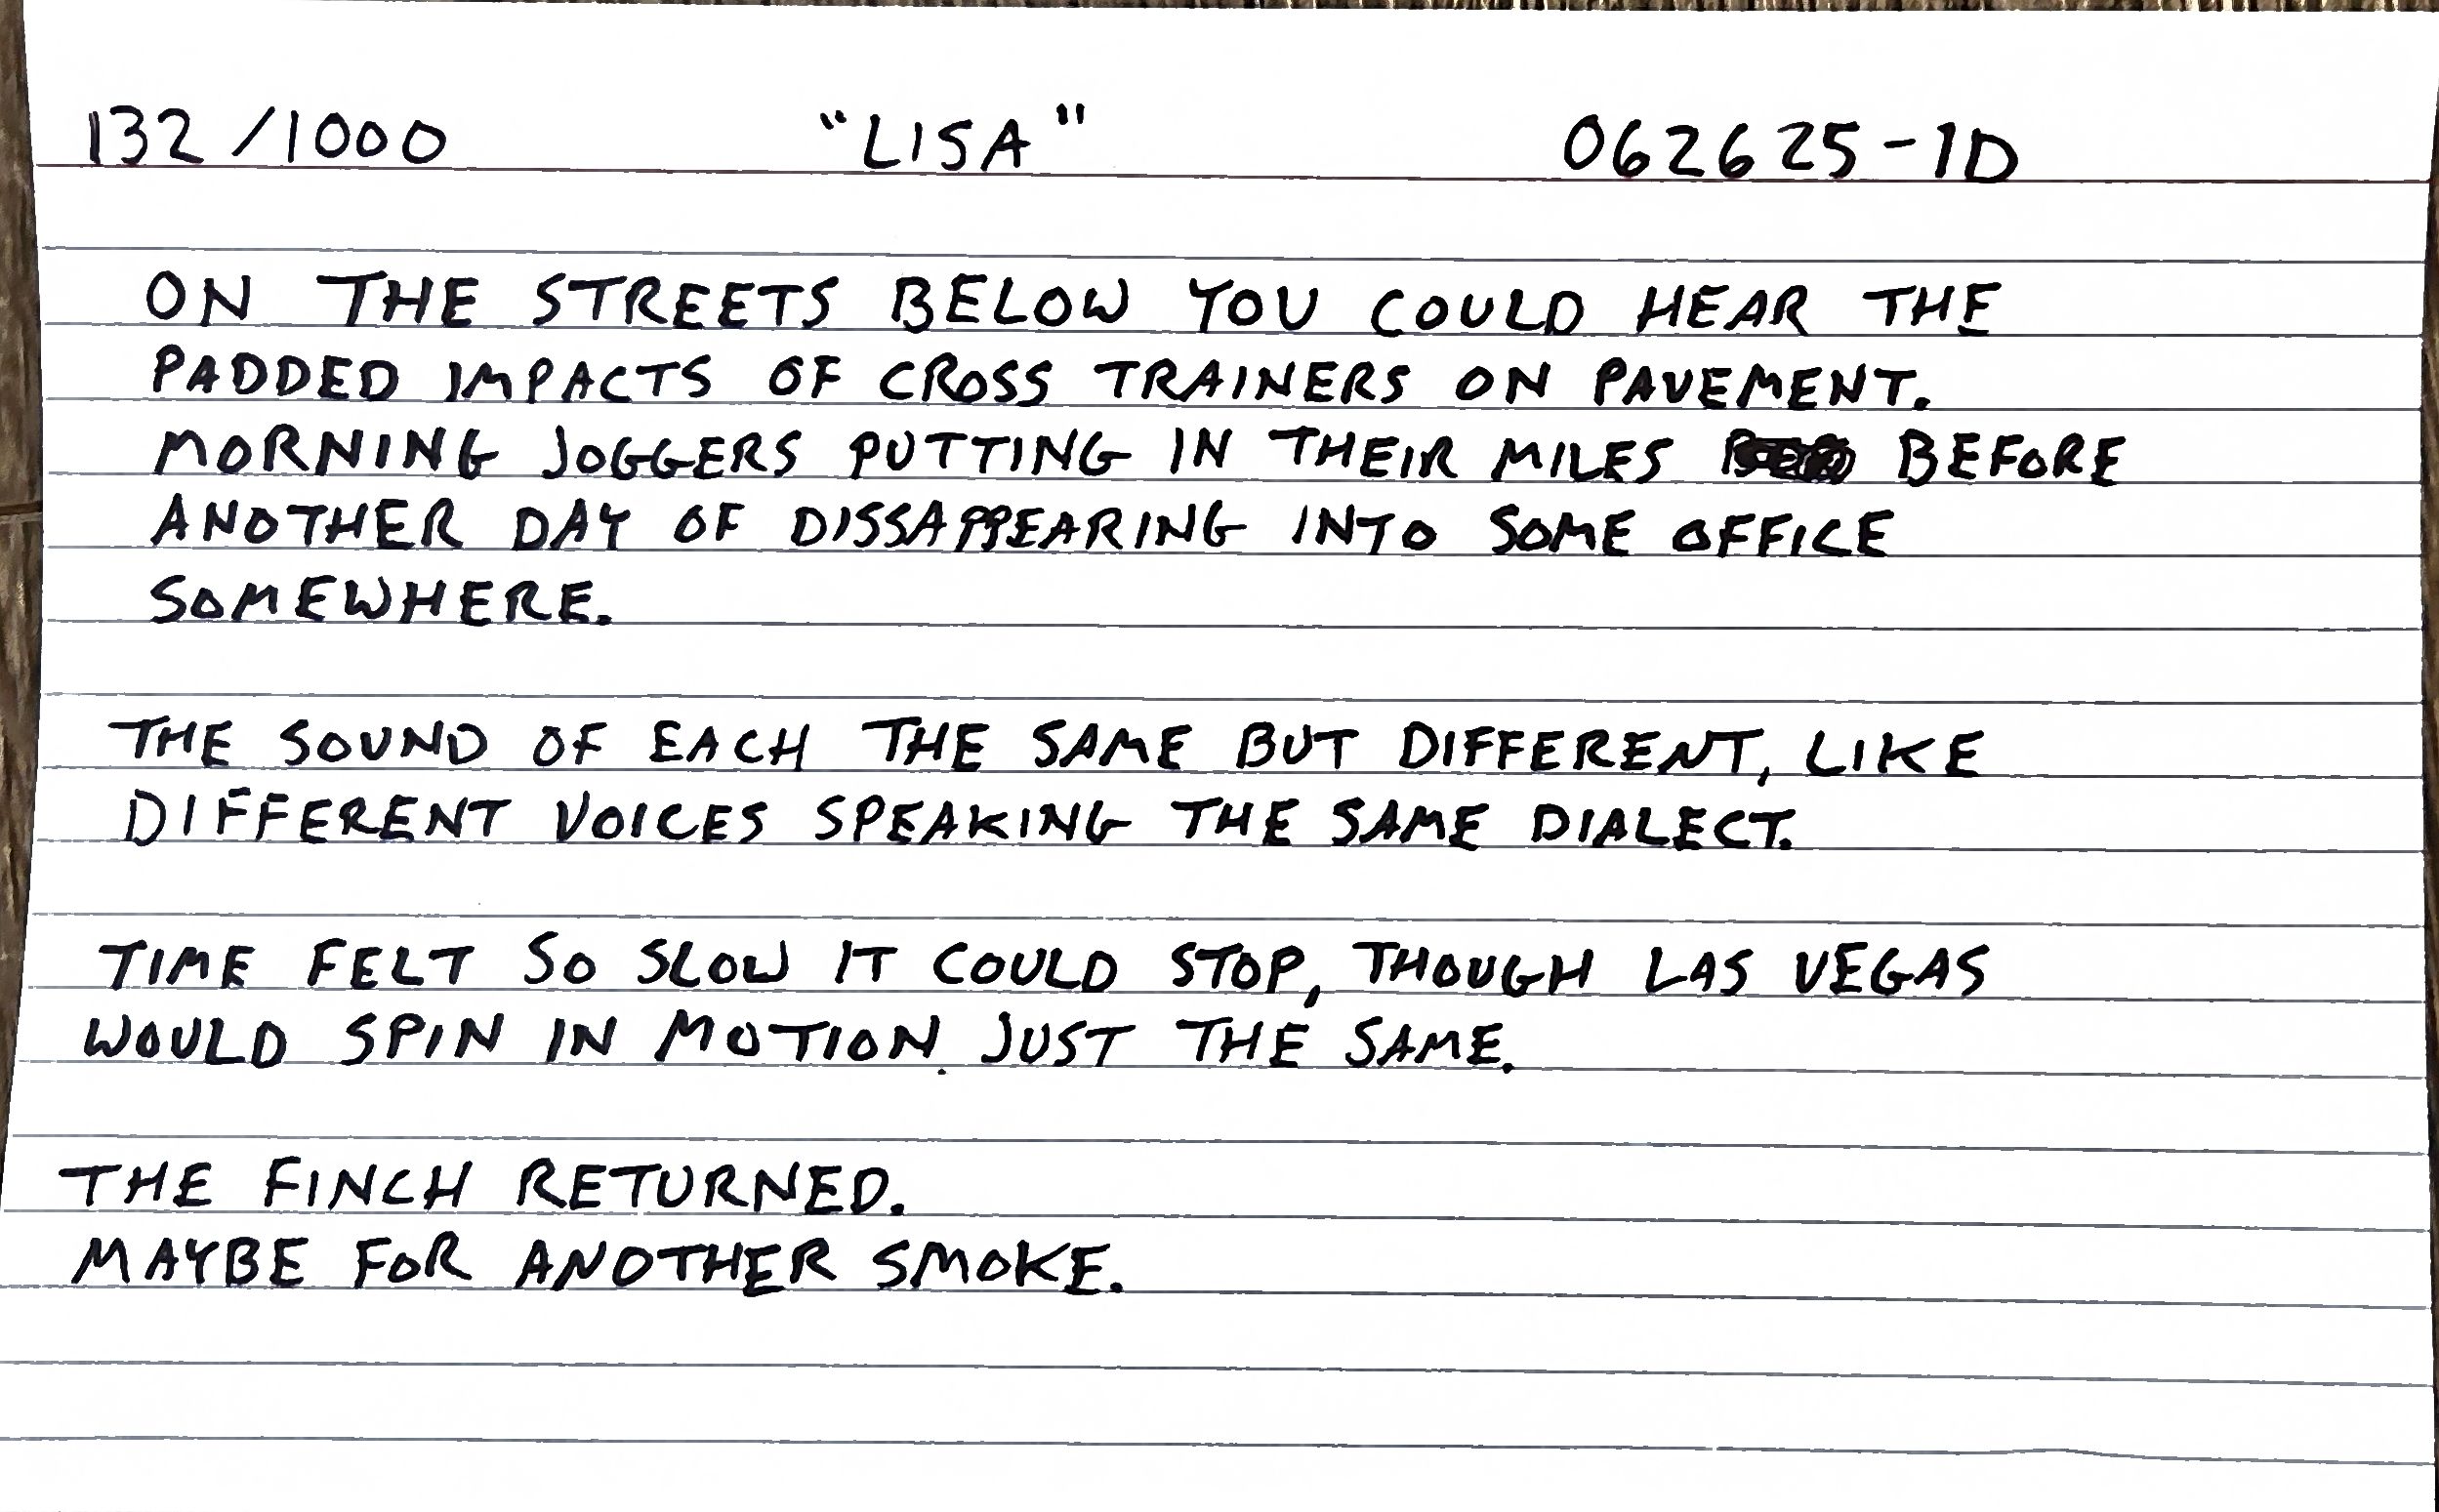 132/1000 "LISA" 062625-1D
ON THE STREETS BELOW YOU COULD HEAR THE
PADDED IMPACTS OF CROSS TRAINERS ON PAVEMENT.
MORNING JOGGERS PUTTING IN THEIR MILES BEFORE
ANOTHER DAY OF DISSAPPEARING INTO SOME OFFICE
SOMEWHERE.
THE SOUND OF EACH THE SAME BUT DIFFERENT, LIKE
DIFFERENT VOICES SPEAKING THE SAME DIALECT.
TIME FELT SO SLOW IT COULD STOP, THOUGH LAS VEGAS
WOULD SPIN IN MOTION JUST THE SAME.
THE FINCH RETURNED.
MAYBE FOR ANOTHER SMOKE.